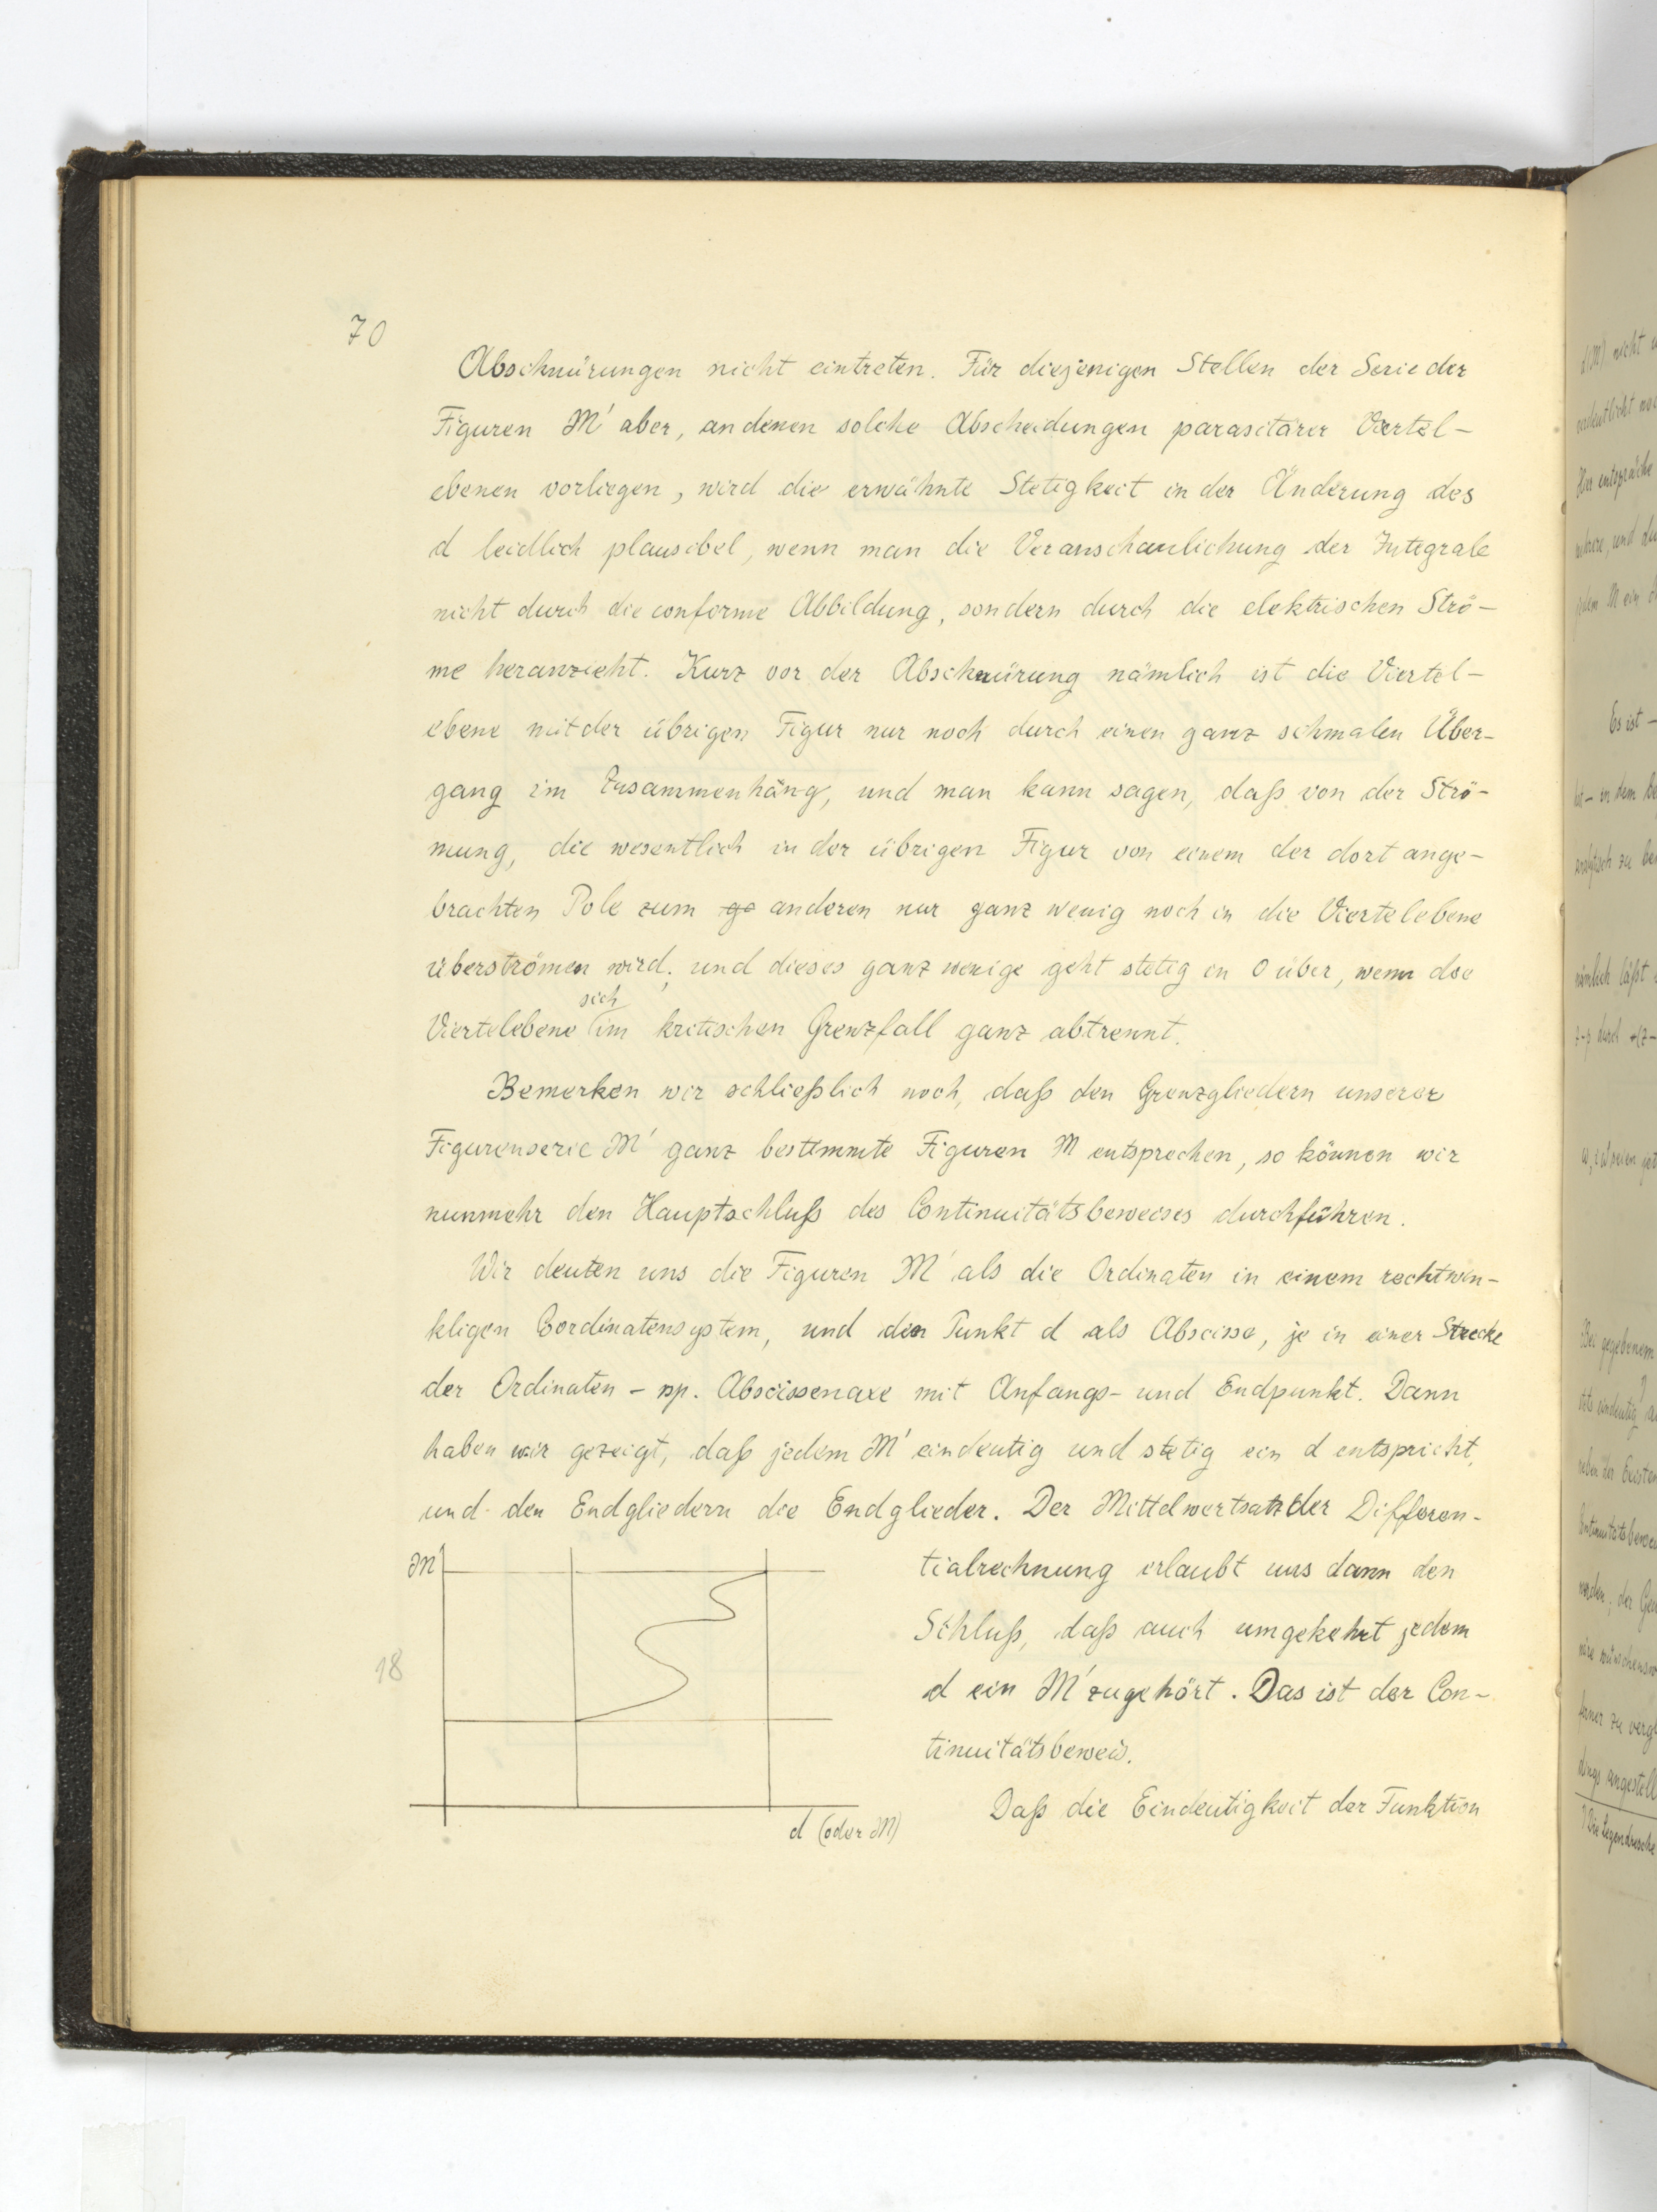 70
Abschnürungen nicht eintreten. Für diejenigen Stellen der Serie der
Figuren M' aber, an denen solche Abscheidungen parasitärer Viertel-
ebenen vorliegen, wird die erwähnte Stetigkeit in der Änderung des
d leidlich plausibel, wenn man die Veranschaulichung der Integrale
nicht durch die conforme Abbildung, sondern durch die elektrischen Strö-
me heranzieht. Kurz vor der Abschnürung nämlich ist die Viertel-
ebene mit der übrigen Figur nur noch durch einen ganz schmalen Über-
gang im Zusammenhang, und man kann sagen, daß von der Strö-
mung, die wesentlich in der übrigen Figur von einem der dort ange-
brachten Pole zum ge anderen nur ganz wenig noch in die Viertelebene
überströmen wird; und dieses ganz wenige geht stetig in 0 über, wenn die
sich
Viertelebene im kritischen Grenzfall ganz abtrennt.
Bemerken wir schließlich noch, daß den Grenzgliedern unserer
Figurenserie M' ganz bestimmte Figuren M entsprechen, so können wir
nunmehr den Hauptschluß des Continuitätsbeweises durchführen.
Wir deuten uns die Figuren M' als die Ordinaten in einem rechtwin-
kligen Coordinatensystem, und den Punkt d als Abscisse, je in einer Strecke
der Ordinaten - rsp. Abscissenaxe mit Anfangs- und Endpunkt. Dann
haben wir gezeigt, daß jedem M' eindeutig und stetig ein d entspricht,
und den Endgliedern die Endglieder. Der Mittelwertsatz der Differen-
tialrechnung erlaubt uns dann den
Schluß, daß auch umgekehrt jedem
d ein M' zugehört. Das ist der Con-
tinuitätsbeweis.
Daß die Eindeutigkeit der Funktion
M
18
d (oder M)
Es ist -